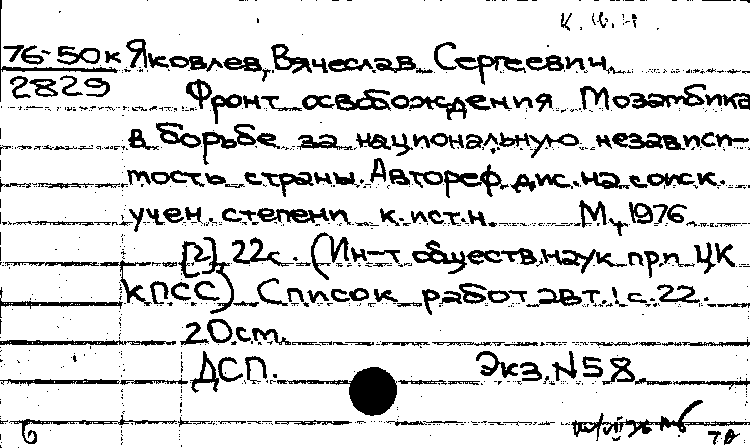 к. и. н
76-50к Яковлев, Вячеслав Сергеевич.
2829
Фронт освобождения Мозамбика
в борьбе за национальную независи-
мость страны. Автореф. дис. на соиск.
учен. степени к. ист. н. М., 1976.
[2], 22с. (Ин-т обществ. наук при ЦК
КПСС) Список работ авт.: с. 22.
20см.
ДСП. Экз. N58.
6